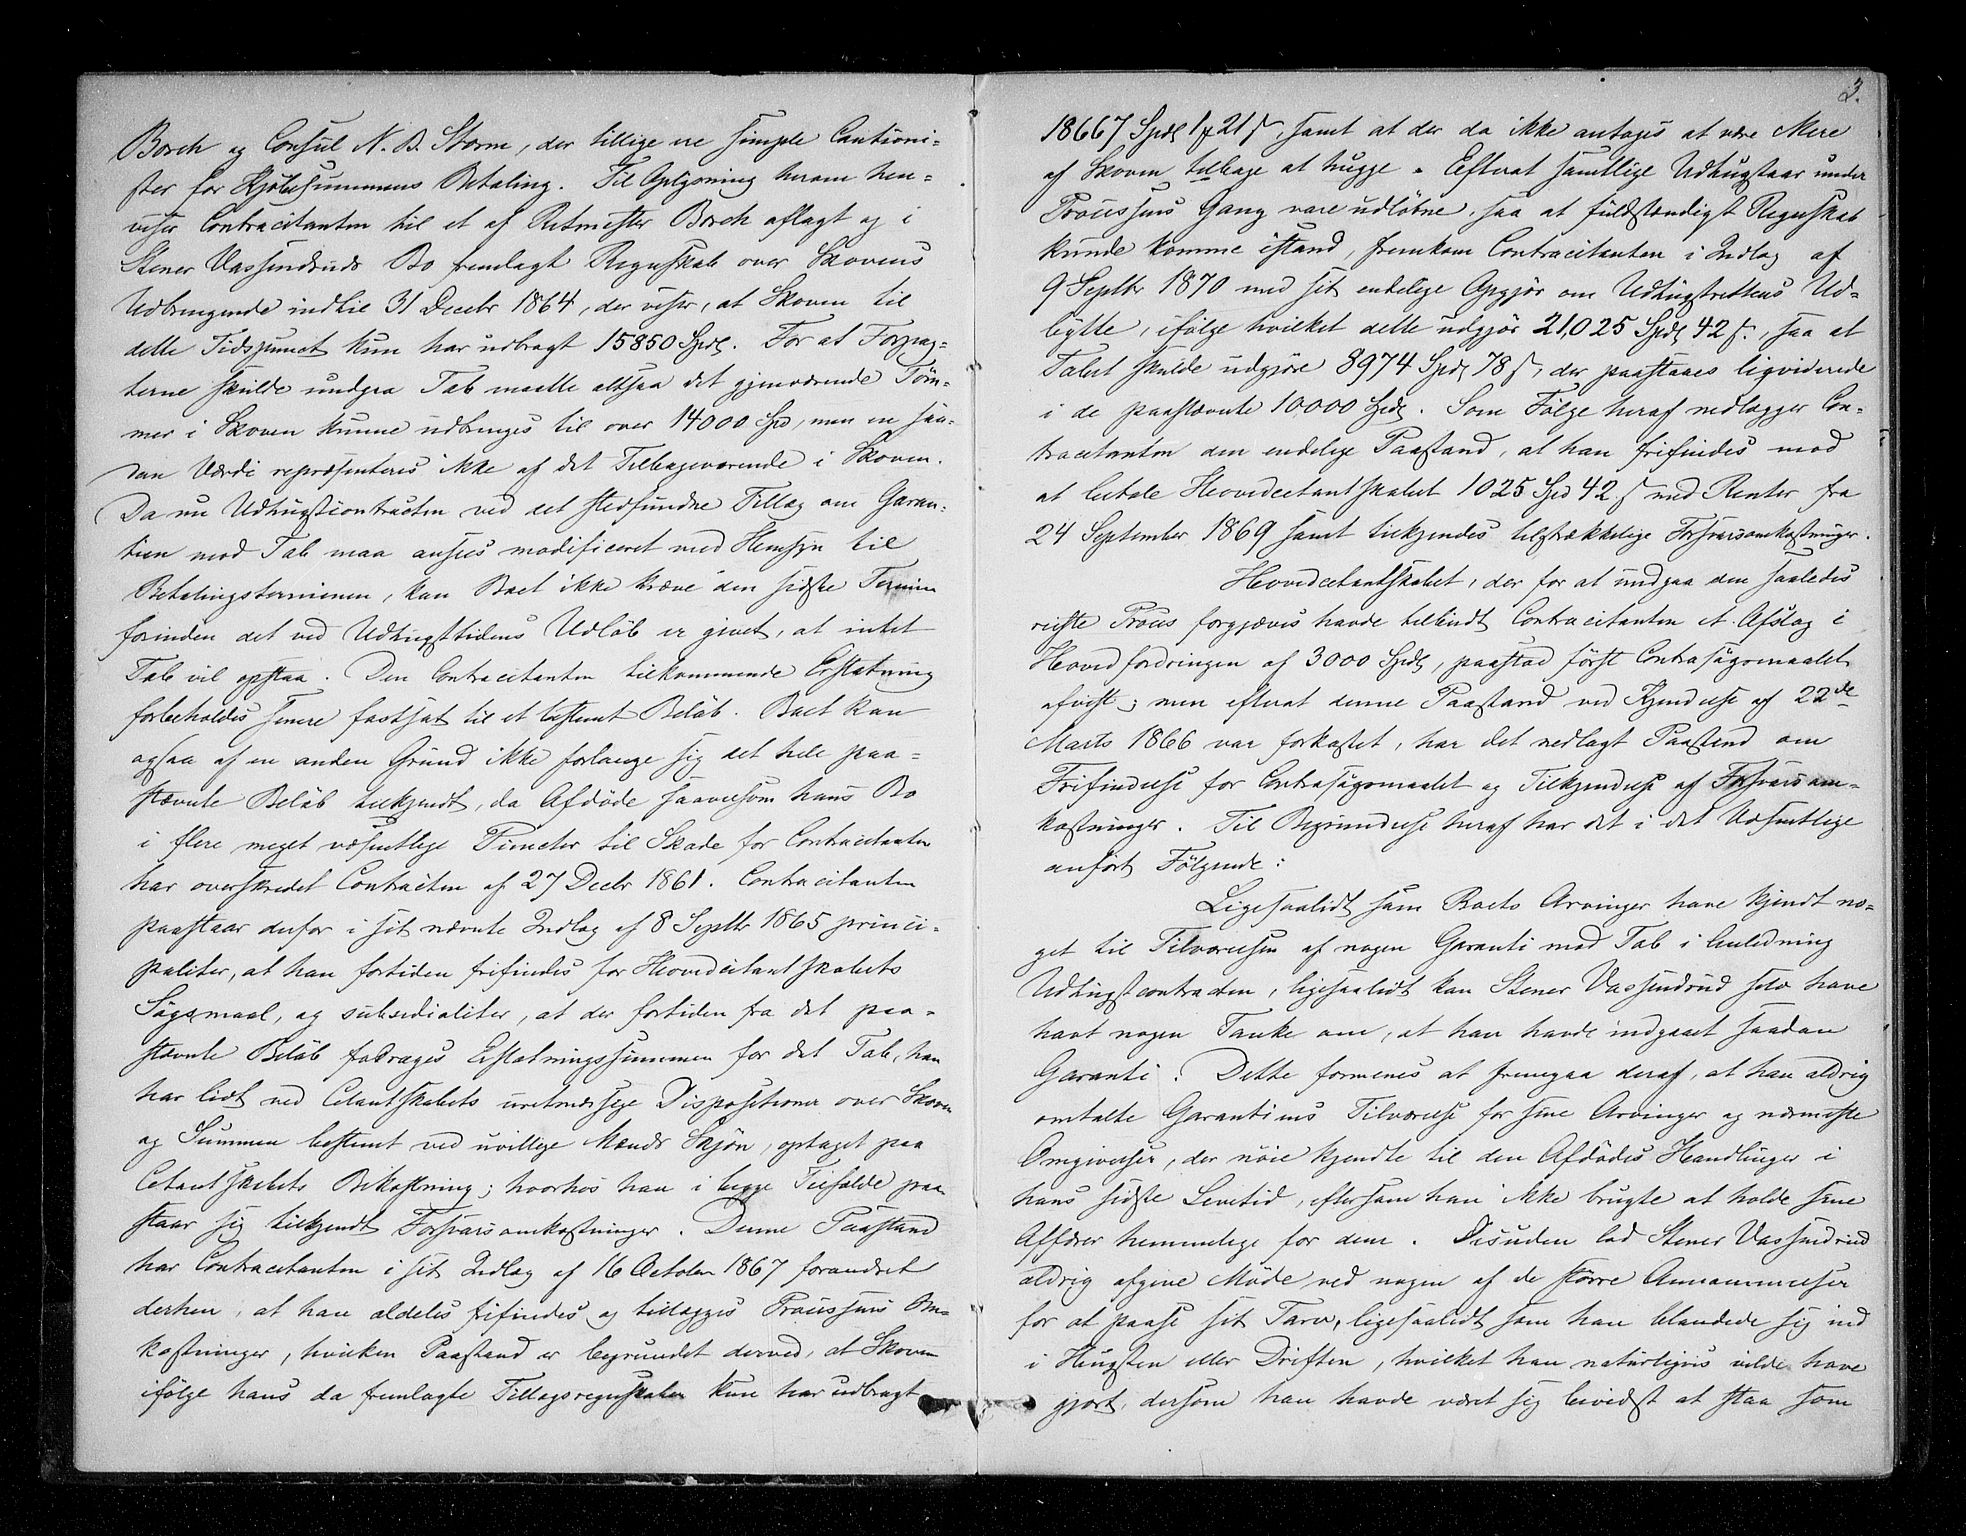 Borch og Consul N. B. Storm, der tillige ere simple Cautioni-
ster for Kjøbesummens Betaling. Til Oplysning herom hen-
viser Contracitanten til et af Ritmester Borch aflagt og i
Stener Vassendruds Bo fremlagt Regnskab over Skovens
Udbringende indtil 31 Decebr 1864, der viser, at Skoven til
dette Tidspunct kun har udbragt 15850 Spdl. For at Forpag-
terne skulde undgaa Tab maatte altsaa det gjenværende Tøm-
mer i Skoven kunne udbringes til over 14000 Spd, men en saa-
dan Værdi repræsenteres ikke af det Tilbageværende i Skoven.
Da nu Udhugstcontracten ved det stedfundne Tillæg om Garan-
tien mod Tab maa ansees modificeret med Hensyn til
Betalingsterminen, kan Boet ikke kræve den sidste Termin
forinden det ved Udhugsttidens Udløb er givet, at intet
Tab vil opstaa. Den Contracitanten tilkommende Erstatning
forbeholdes senere fastsat til et bestemt Beløb. Boet kan
ogsaa af en anden Grund ikke forlange sig det hele paa-
stævnte Beløb tilkjendt, da Afdøde saavelsom hans Bo
i flere meget væsentlige Puncter til Skade for Contracitanten
har overskredet Contracten af 27 Decbr 1861. Contracitanten
paastaar derfor i sit nævnte Indlæg af 8 Septbr 1865 princi-
paliter, at han fortiden frifindes for Hovedcitantskabets
Søgsmaal, og subsidialiter, at der fortiden fra det paa-
stævnte Beløb fradrages Erstatningssummen for det Tab, han
har lidt ved Citantskabets uretmæssige Dispositioner over Skoven
og Summen bestemt ved uvillige Mænds Skjøn, optaget paa
Citantskabets Bekostning; hvorhos han i begge Tilfælde paa-
staar sig tilkjendt Forsvarsomkostninger. Denne Paastand
har Contracitanten i sit Indlæg af 16 October 1867 forandret
derhen, at han aldeles frifindes og tillægges Processens Om-
kostninger, hvilken Paastand er begrundet derved, at Skoven
ifølge hans da fremlagte Tillægsregnskaber kun har udbragt
3.
18667 Spdl 1 21 s, samt at der da ikke antages at være Mere
af Skoven tilbage at hugge. Efterat samtlige Udhugstaar under
Processens Gang vare udløbne, saa at fuldstændigt Regnskab
kunde komme istand, fremkom Contracitanten i Indlæg af
9 Septbr 1870 med sit endelige Opgjør om Udhugstrettens Ud-
bytte, ifølge hvilket dette udgjør 21,025 Spdl 42 s., saa at
Tabet skulde udgjøre 8974 Spdl 78 s, der paastaaes ligviderede
i de paastævnte 10000 Spdl. Som Følge heraf nedlægger Con-
tracitanten den endelige Paastand, at han frifindes mod
at betale Hovedcitantskabet 1025 Spd 42 s med Renter fra
24 September 1869 samt tilkjendes tilstrækkelige Forsvarsomkostninger.
Hovedcitantskabet, der for at undgaa den saaledes
reiste Proces forgjæves havde tilbudt Contracitanten et Afslag i
Hovedfordringen af 3000 Spdl, paastod først Contrasøgsmaalet
afvist; men efterat denne Paastand ved Kjendelse af 22de
Marts 1866 var forkastet, har det nedlagt Paastand om
Frifindelse for Contrasøgsmaalet og Tilkjendelse af Forsvarsom-
kostninger. Til Begrundelse heraf har det i det Væsentlige
anført Følgende:
Ligesaalidt som Boets Arvinger have kjendt no-
get til Tilværelsen af nogen Garanti mod Tab i Anledning
Udhugstcontracten, ligesaalidt kan Stener Vassendrud selv have
havt nogen Tanke om, at han havde indgaaet saadan
Garanti. Dette formenes at fremgaa deraf, at han aldrig
omtalte Garantiens Tilværelse for sine Arvinger og nærmeste
Omgivelser, der nøie kjendte til den Afdødes Handlinger i
hans sidste Levetid, eftersom han ikke brugte at holde sine
Affærer hemmelige for dem. Desuden lod Stener Vassendrud
aldrig afgive Møde ved nogen af de større Annammelser
for at paase sit Tarv, ligesaalidt som han blandede sig ind
i Hugsten eller Driften, hvilket han naturligvis vilde have
gjort, dersom han havde været sig bevidst at staa som